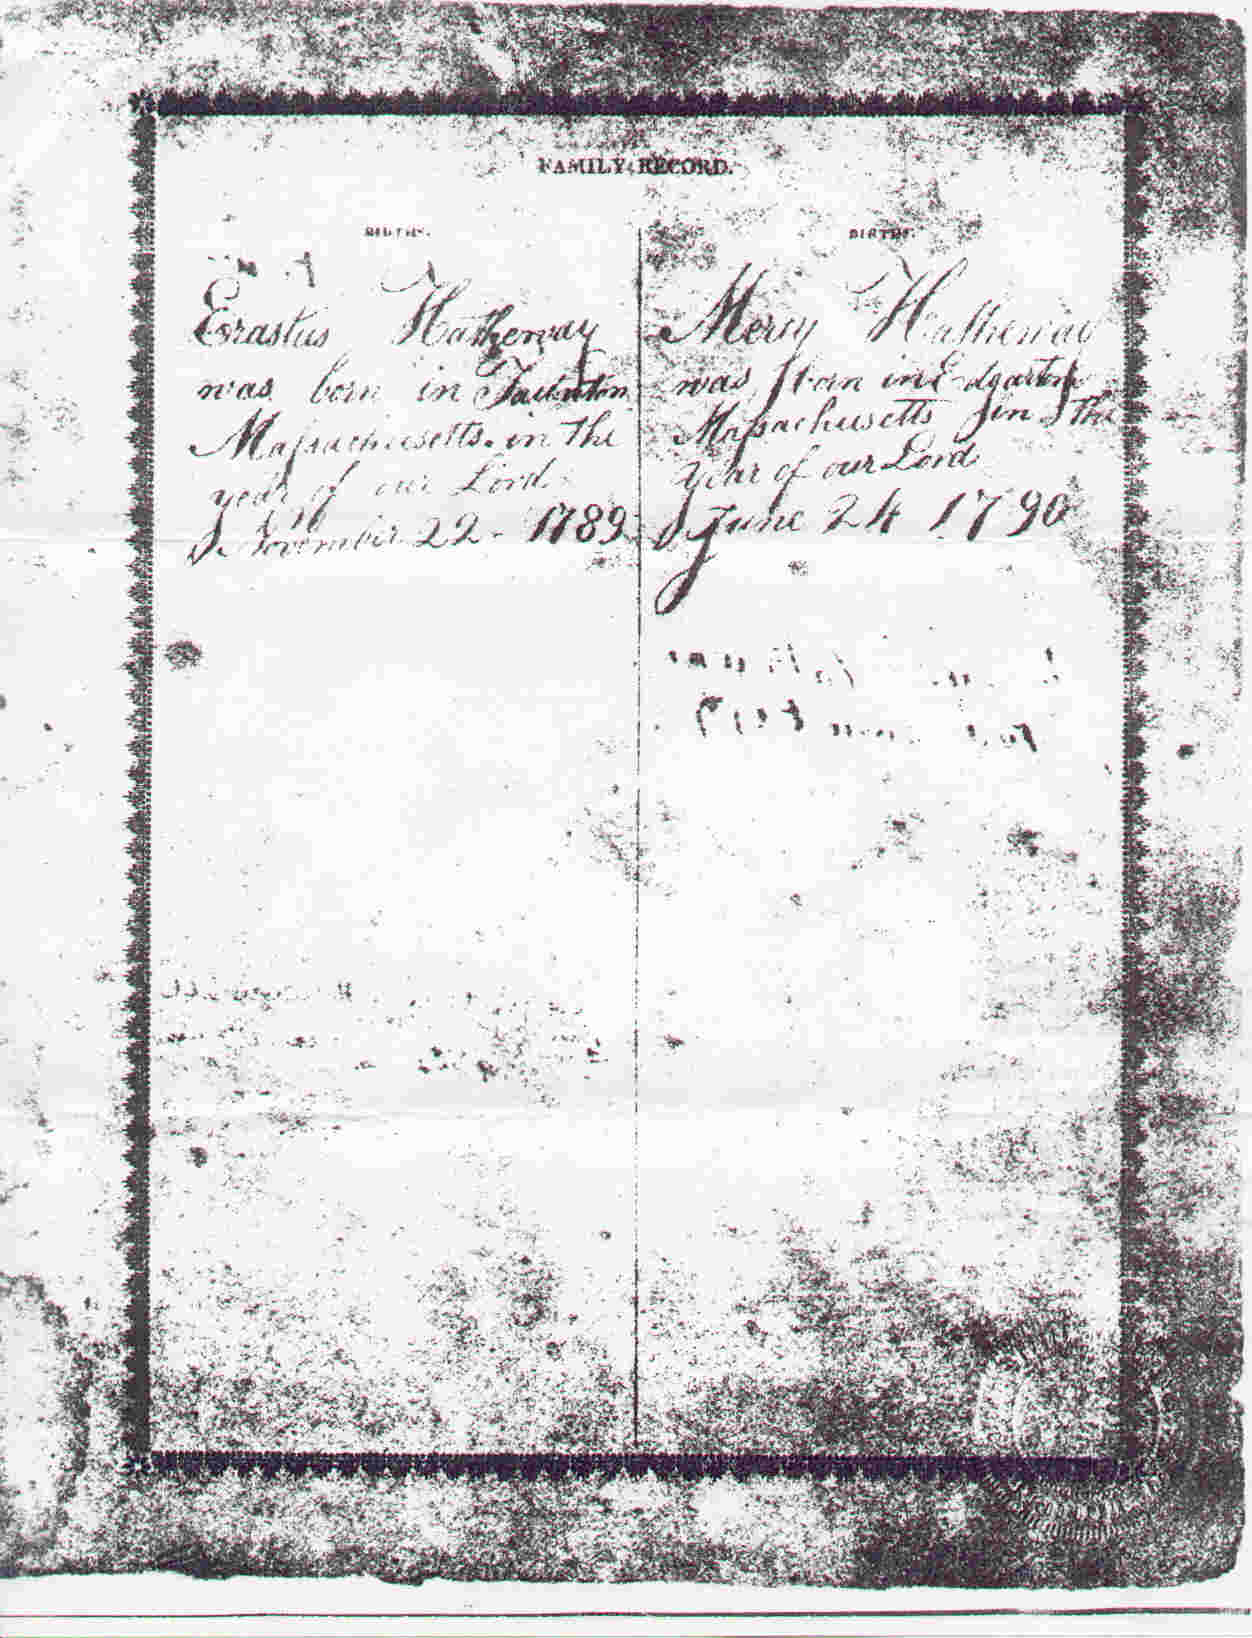 FAMILY RECORD.
BIRTHS.
Erastus Hatheway
was born in Taunton
Massachusetts in the
year of our Lord
November 22 - 1789
BIRTHS.
Mercy Hatheway
was born in Edgarton
Massachusetts in the
year of our Lord
June 24 1790